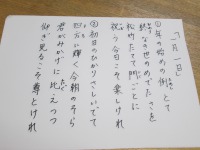 「一月一日」
①年の始めの例とて
終なき世のめでたさを
松竹たてて門ごとに
祝う今日こそ楽しけれ
②初日のひかりさしいでて
四方に輝く今朝のそら
君がみかげに比えつつ
仰ぎ見るこそ尊とけれ